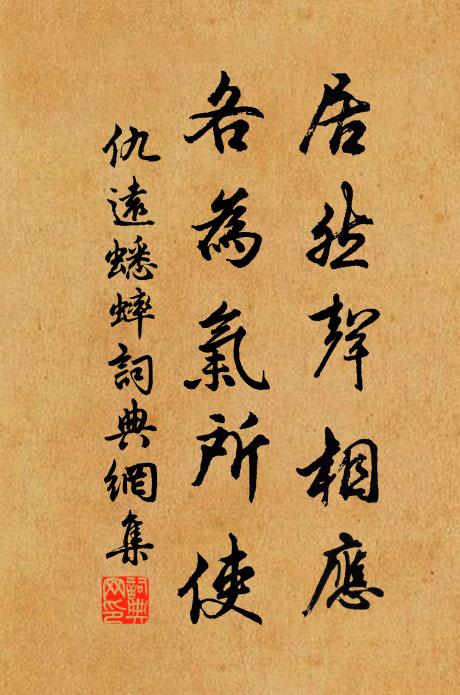 居然聲相應
各為氣所使
仇遠蟋蟀詞典網集
詞典網印